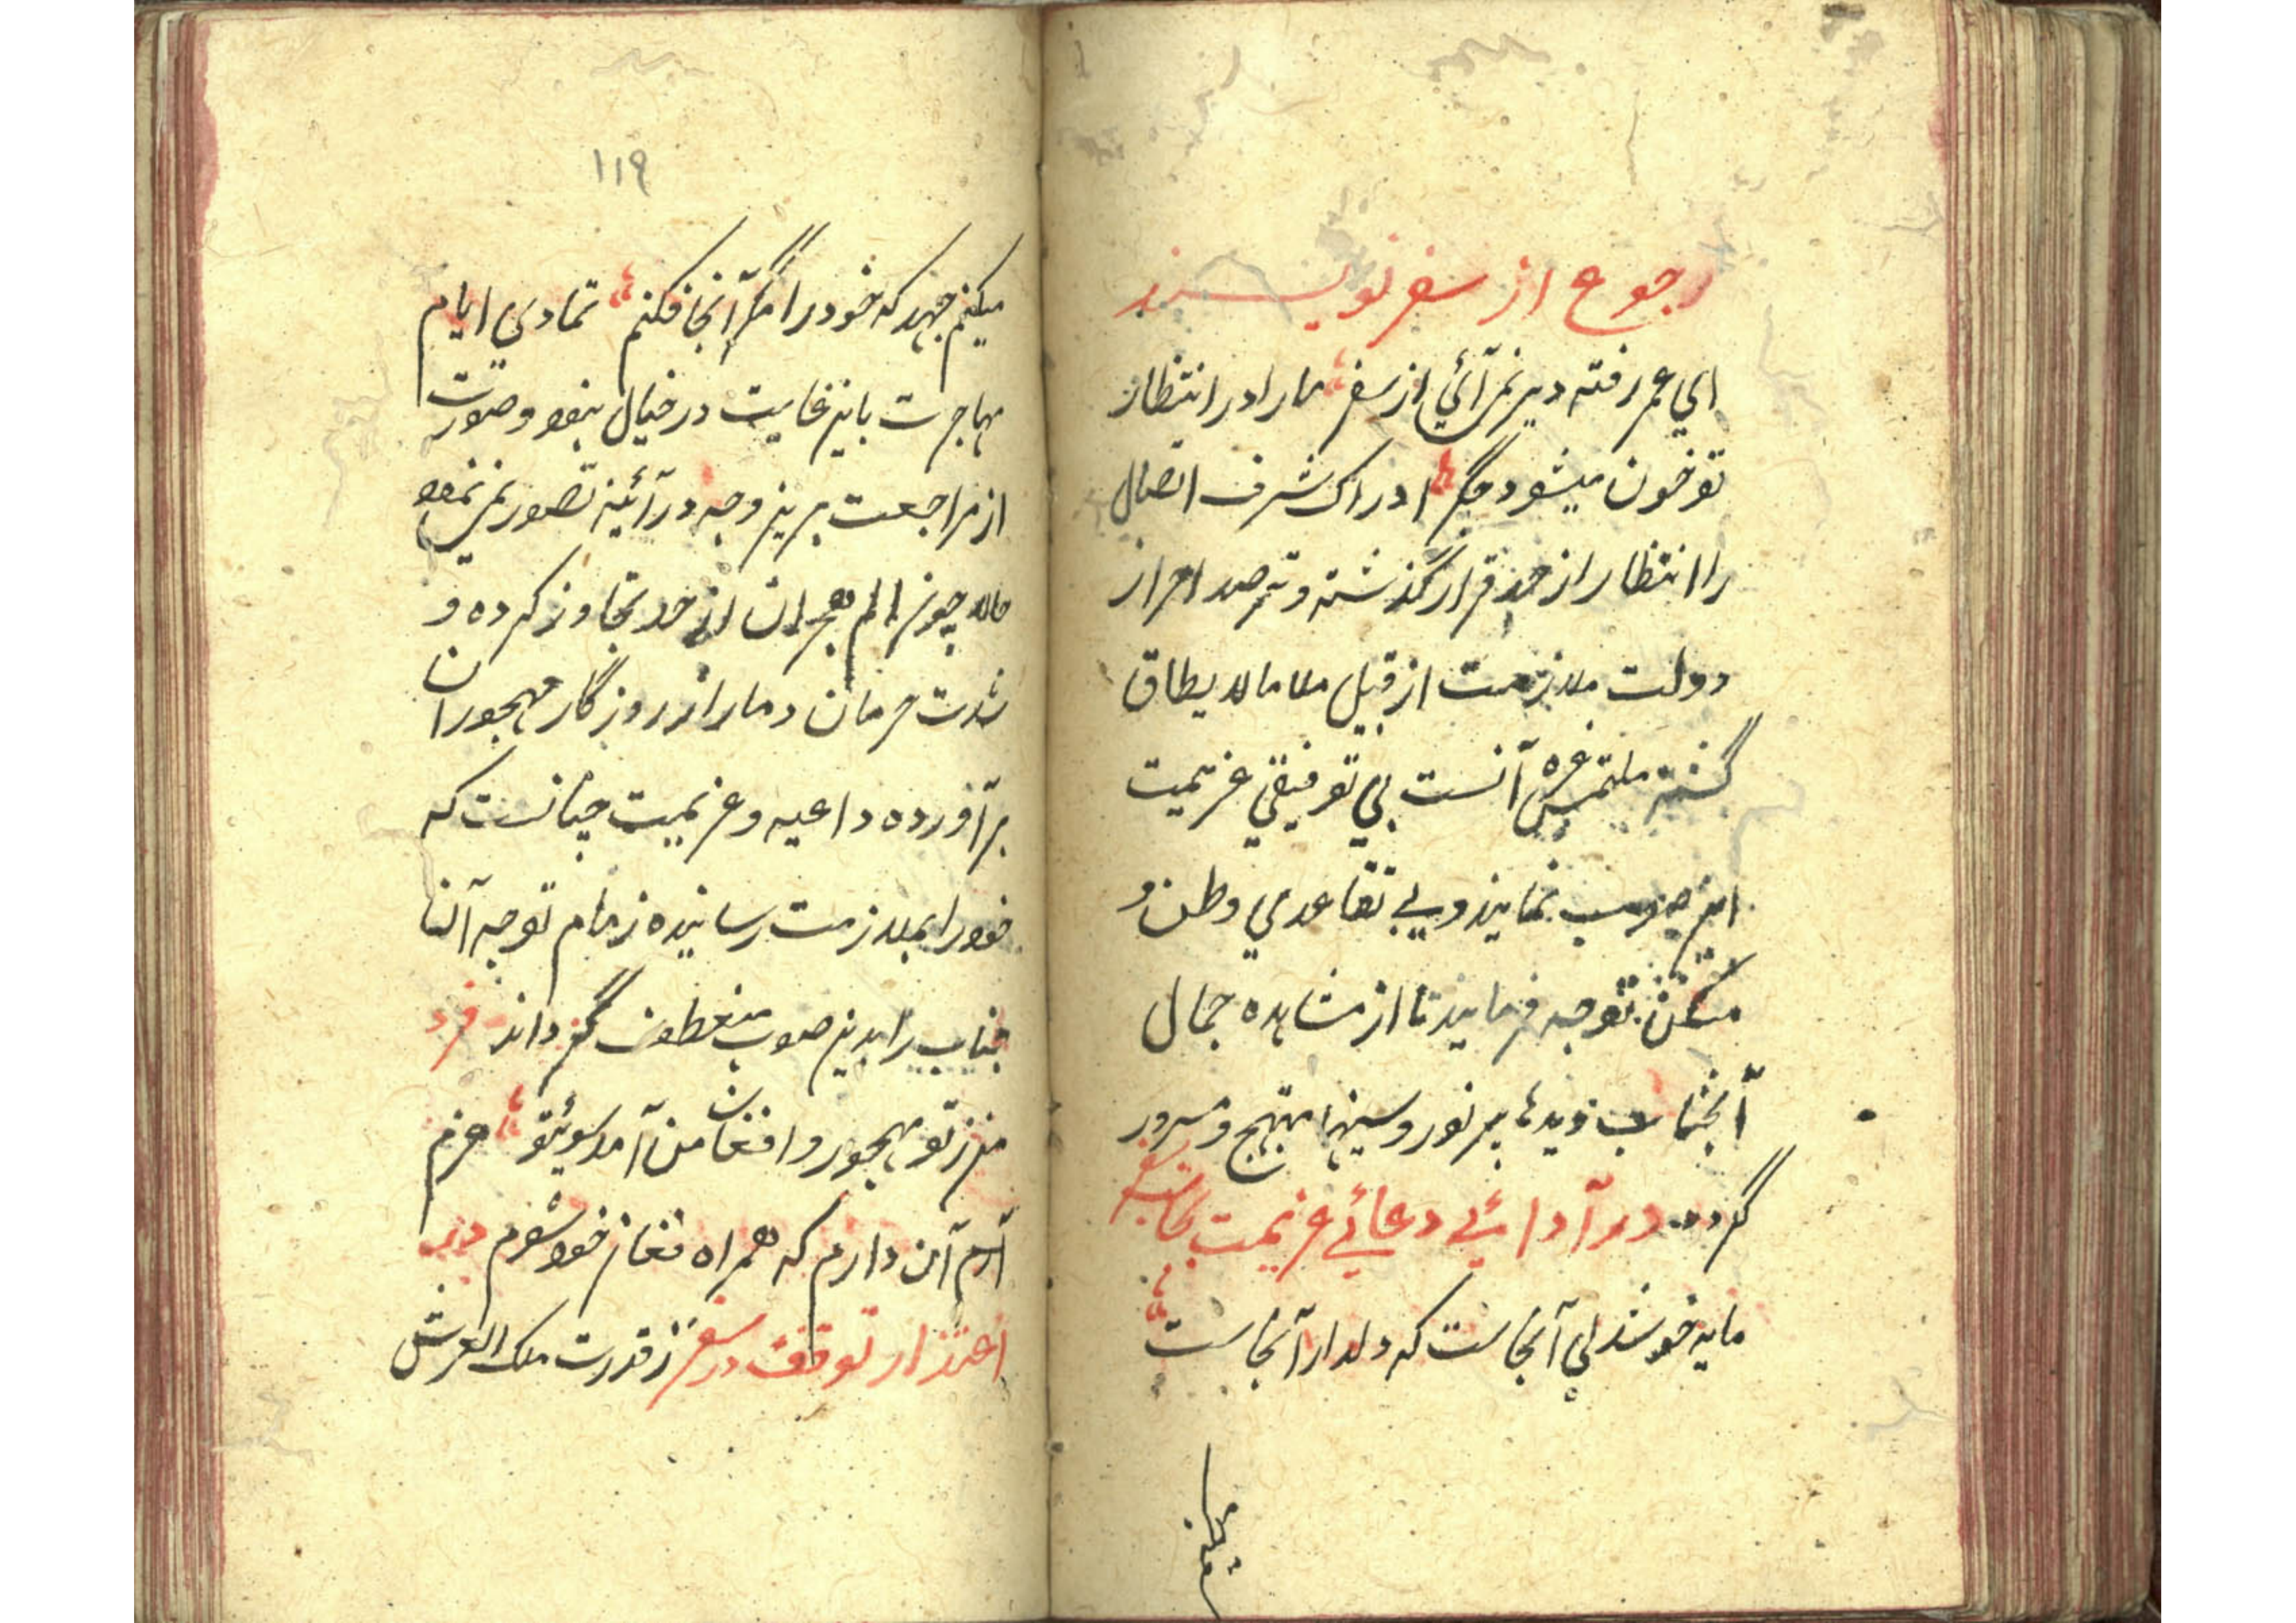 رجوع از سفر نویسند
ای عمر رفته دیر نمی آئی از سفر ما را در انتظار
تو خون میشود جگر ادراک شرف اتصال
را انتظار از حد قرار گذشته و ترصد احراز
دولت ملازمت از قبیل ملا مالا یطاق
گشته ملتمس آنست بی توفیقی عزیمت
این صوب نمایند و بی تقاعدی وطن و
مسکن توجه فرمایند تا از مشاهده جمال
آنجناب دیدها پر نور و سینها مبتهج و مسرور
گردد در آدائی دعائی عزیمت بجانب
مایه خوشدلی آنجاست که دلدار آنجاست
میکنم
۱۱۹
میکنم جهد که خود را مگر آنجا فکنم تمادی ایام
مهاجرت باین غایت در خیال نبود و صورت
از مراجعت برین وجه در آئینه تصور نمی نمود
حالا چون الم هجران از حد تجاوز کرده و
شدت حرمان دمار از روزگار مهجوران
برآورده داعیه و عزیمت چنانست که
خود را بملازمت رسانیده زمام توجه آن
جناب را بدین صوب منعطف گرداند فرد
من ز تو مهجور و افغان من آمد سوی تو عزم
آن دارم که همراه فغان خود شوم
اعتذار توقف در سفر ز قدرت ملک العرش